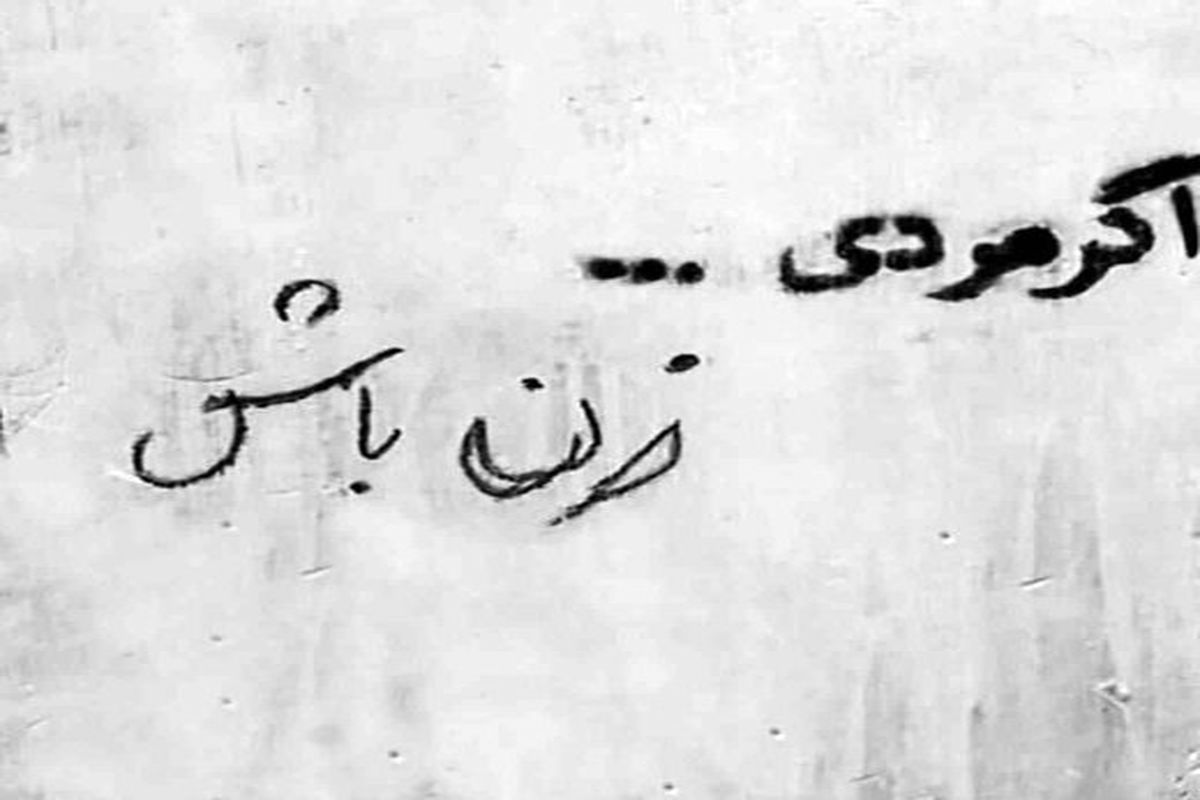 اگر مردی ...
زن باش